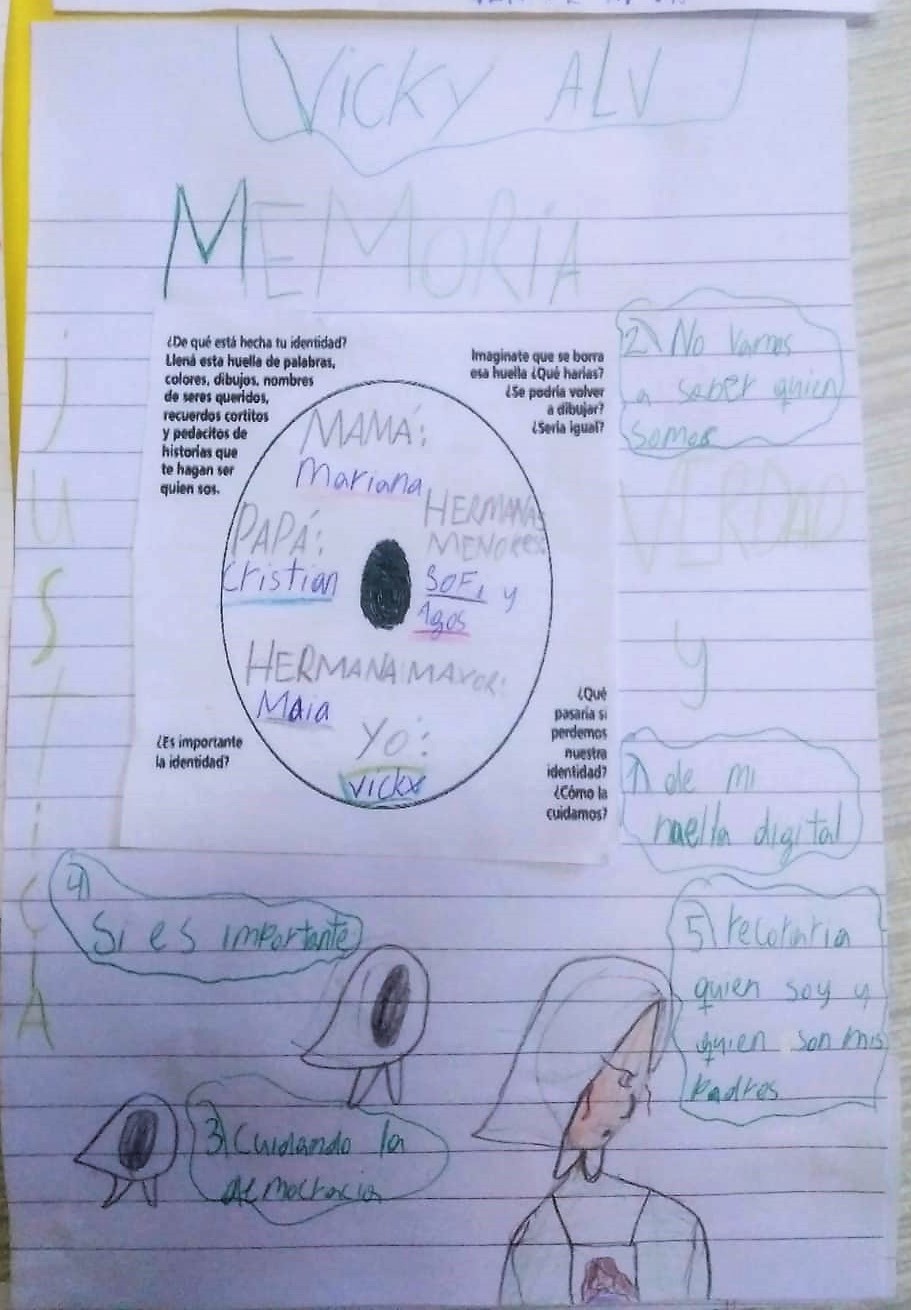 VICKY ALV
MEMORIA
¿De qué está hecha tu identidad?
Llená esta huella de palabras,
colores, dibujos, nombres
de seres queridos,
recuerdos cortitos
y pedacitos de
historias que
te hagan ser
quien sos.
Imaginate que se borra
esa huella ¿Qué harías?
¿Se podría volver
a dibujar?
¿Sería igual?
2) No Vamos
a saber quien
Somos
MAMÁ:
Mariana
PAPÁ:
Cristian
HERMANAS
MENORES:
SOFI y
Agos
HERMANA MAYOR:
Maia
YO:
Vicky
¿Es importante
la identidad?
¿Qué
pasaría si
perdemos
nuestra
identidad?
¿Cómo la
cuidamos?
JUSTiCiA
VERDAD
y
1) de mi
huella digital
4)
Si es importante
5)
quien soy y
quien son mis
Padres
3) Cuidando la
democracia